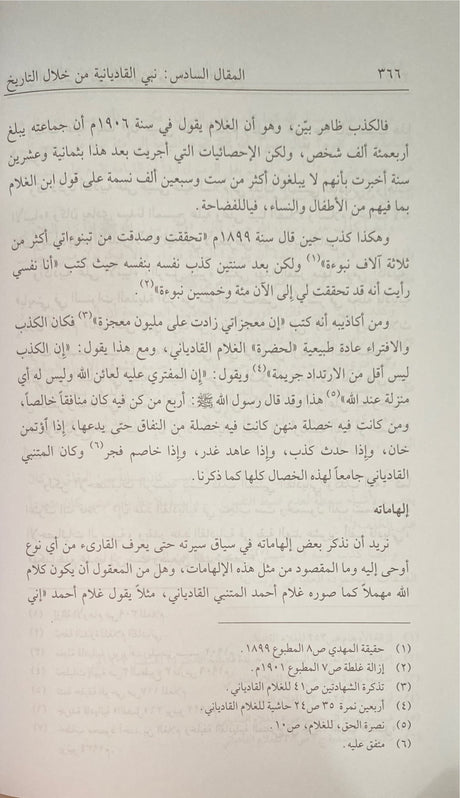 ٣٦٦ المقال السادس: نبي القاديانية من خلال التاريخ
فالكذب ظاهر بيّن، وهو أن الغلام يقول في سنة ١٩٠٦م أن جماعته يبلغ
أربعمئة ألف شخص، ولكن الإحصائيات التي أجريت بعد هذا بثمانية وعشرين
سنة أخبرت بأنهم لا يبلغون أكثر من ست وسبعين ألف نسمة على قول ابن الغلام
بما فيهم من الأطفال والنساء، فياللفضاحة.
وهكذا كذب حين قال سنة ١٨٩٩م «تحققت وصدقت من تنبوءاتي أكثر من
ثلاثة آلاف نبوءة»(١) ولكن بعد سنتين كذب نفسه بنفسه حيث كتب «أنا نفسي
رأيت أنه قد تحققت لي إلى الآن مئة وخمسين نبوءة»(٢).
ومن أكاذيبه أنه كتب «إن معجزاتي زادت على مليون معجزة»(٣) فكان الكذب
والافتراء عادة طبيعية «لحضرة» الغلام القادياني، ومع هذا يقول: «إن الكذب
ليس أقل من الارتداد جريمة»(٤) ويقول: «إن المفتري عليه لعائن الله وليس له أي
منزلة عند الله»(٥) هذا وقد قال رسول الله ﷺ: أربع من كن فيه كان منافقاً خالصاً،
ومن كانت فيه خصلة منهن كانت فيه خصلة من النفاق حتى يدعها، إذا أؤتمن
خان، وإذا حدث كذب، وإذا عاهد غدر، وإذا خاصم فجر(٦) وكان المتنبي
القادياني جامعاً لهذه الخصال كلها كما ذكرنا.
إلهاماته
نريد أن نذكر بعض إلهاماته في سياق سيرته حتى يعرف القارىء من أي نوع
أوحى إليه وما المقصود من مثل هذه الإلهامات، وهل من المعقول أن يكون كلام
الله مهملاً كما صوره غلام أحمد المتنبي القادياني، مثلاً يقول غلام أحمد «إني
(١) حقيقة المهدي ص٨ المطبوع ١٨٩٩.
(٢) إزالة غلطة ص٧ المطبوع ١٩٠١م.
(٣) تذكرة الشهادتين ص٤١ للغلام القادياني.
(٤) أربعين نمرة ٣٥ ص٢٤ حاشية للغلام القادياني.
(٥) نصرة الحق، للغلام، ص١٠.
(٦) متفق عليه.